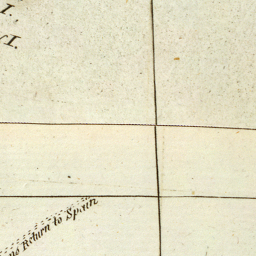 I.
I.
Return to Spain